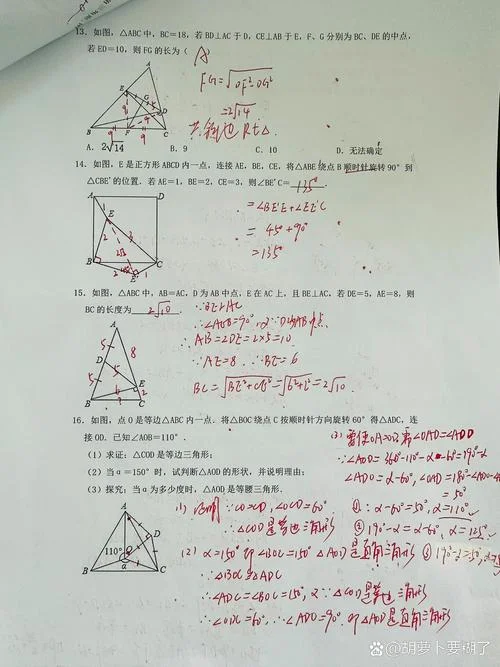 13. 如图，△ABC中，BC=18，若BD⊥AC于D，CE⊥AB于E，F、G分别为BC、DE的中点，
若ED=10，则FG的长为（ A ）
FG=√DF²-DG²
=2√14
共斜边 Rt△.
A. 2√14 B. 9 C. 10 D. 无法确定
14. 如图，E是正方形ABCD内一点，连接AE、BE、CE，将△ABE绕点B顺时针旋转90°到
△CBE'的位置．若AE=1，BE=2，CE=3，则∠BE'C= 135°
=∠BE'E+∠EE'C
= 45°+90°
=135°
15. 如图，△ABC中，AB=AC，D为AB中点，E在AC上，且BE⊥AC，若DE=5，AE=8，则
BC的长度为 2√10
∵BE⊥AC
∴∠AEB=90°，∵D为AB中点.
∴AB=2DE=2×5=10
∵AE=8 ∴BE=6
BC=√BE²+CE²=√6²+2²=2√10
16. 如图，点O是等边△ABC内一点．将△BOC绕点C按顺时针方向旋转60°得△ADC，连
接OD．已知∠AOB=110°．
(1) 求证：△COD是等边三角形；
(2) 当α=150°时，试判断△AOD的形状，并说明理由；
(3) 探究：当α为多少度时，△AOD是等腰三角形．
(1) 证明 ∵CO=CD，∠OCD=60°
∴△COD是等边三角形
(2) α=150° 即∠BOC=150° △AOD是直角三角形
∴△BOC≌△ADC
∴∠ADC=∠BOC=150°，又∵△COD是等边三角形
∴∠ODC=60°，∴∠ADO=90° 即△AOD是直角三角形
(3) 要使OA=OD，需∠OAD=∠ADO
∵∠AOD=360°-110°-α-60°=190°-α
∠ADO=α-60°，∠OAD=180°-∠AOD-
=50°
①: α-60°=50°，α=110°
② 190°-α=α-60°，α=125°
③ 190°-α=50°，
@胡萝卜要糊了